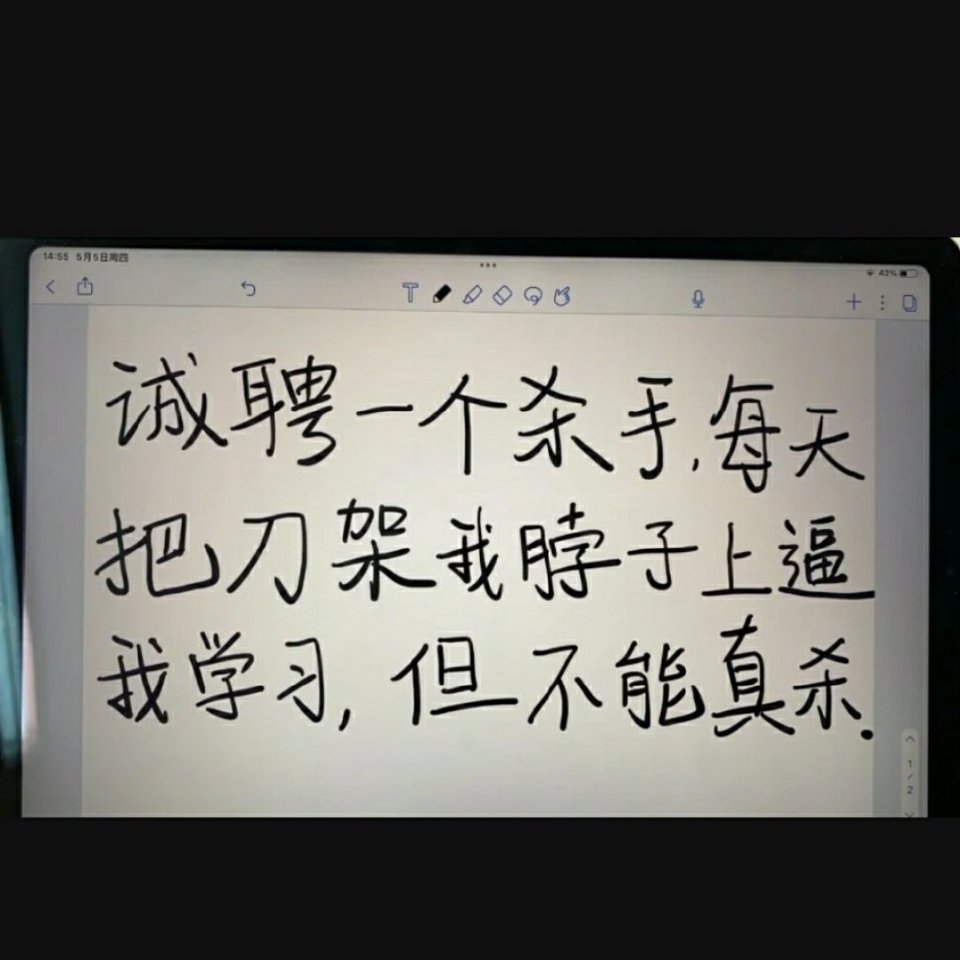 14:55 5月5日周四
42%
诚聘一个杀手,每天
把刀架我脖子上逼
我学习,但不能真杀.
1
/
2